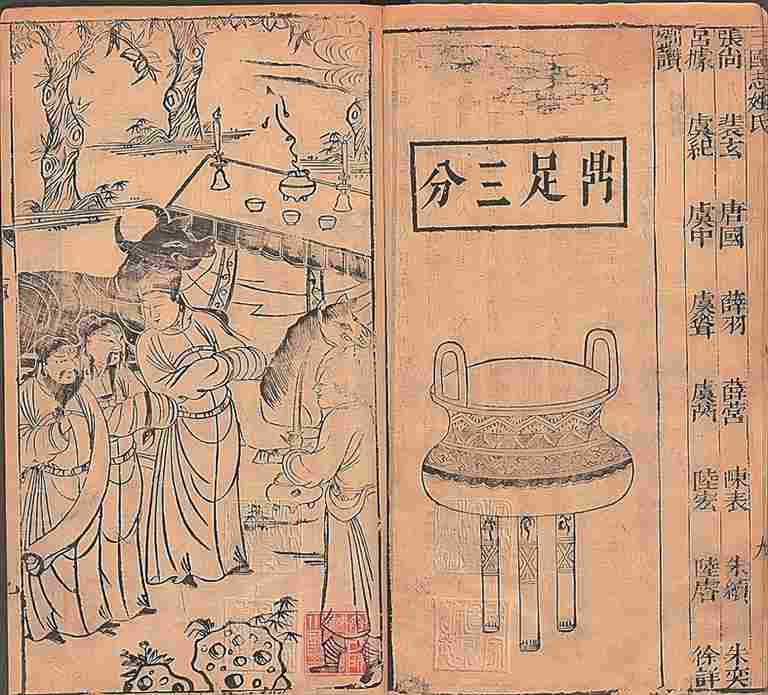 國志姓氏
九
張尚 裴玄 唐國 薛羽 薛 陳表 朱績 朱
呂據 虞紀 虞中 虞聳 虞 陸宏 陸 徐詳
鼎足三分